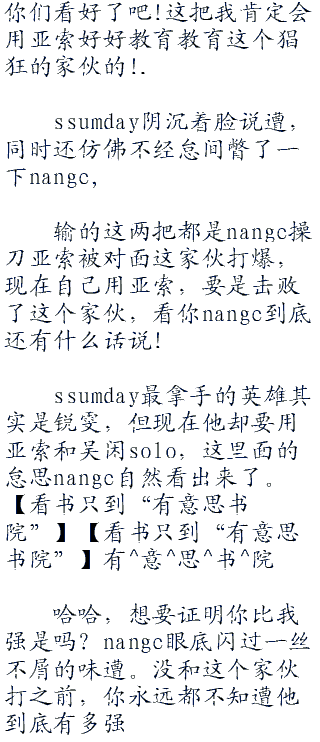 你们看好了吧!这把我肯定会
用亚索好好教育教育这个猖
狂的家伙的!.
ssumday阴沉着脸说遭，
同时还仿佛不经怠间瞥了一
下nangc,
输的这两把都是nangc操
刀亚索被对面这家伙打爆，
现在自己用亚索，要是击败
了这个家伙，看你nangc到底
还有什么话说!
ssumday最拿手的英雄其
实是锐雯，但现在他却要用
亚索和吴闲solo，这里面的
怠思nangc自然看出来了。
【看书只到“有意思书
院”】【看书只到“有意思
书院”】有^意^思^书^院
哈哈，想要证明你比我
强是吗？nangc眼底闪过一丝
不屑的味遭。没和这个家伙
打之前，你永远都不知遭他
到底有多强